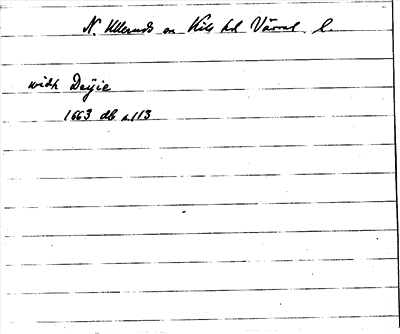 N. Ulleruds sn Kils hd Värml. l.
widh Deyie
1663 db s 113